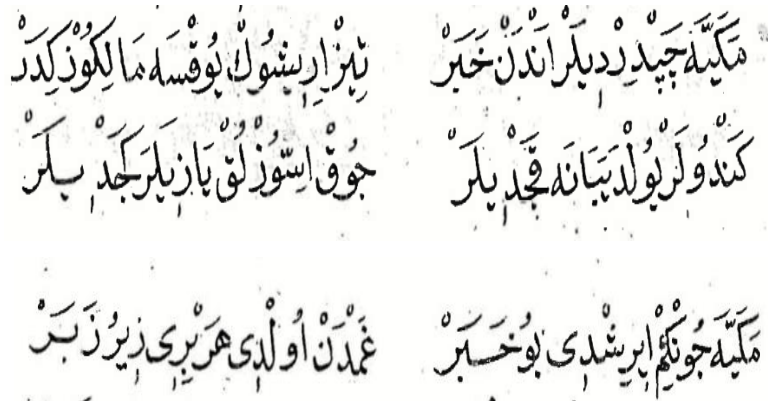 مَكَيَّه چَپِدِرْدِيلَرْ اَنْدَنْ خَبَرْ تِيزْ اِرِيشُوكْ يُوقْسَه مَالِكُوزْ كِدَرْ
كَنْدُولَرْ يُولْدَ يَبَانَه قَچْدِيلَرْ جُوقْ اِسّوُزْلُقْ يَازِيلَرَ كَجْدِيلَرْ
مَكَيَّه جُونْكِمْ اِيرِشْدِى بُو خَبَرْ غَمْدَنْ اُولْدِى هَرْبِرِى زِيرُ زَبَرْ